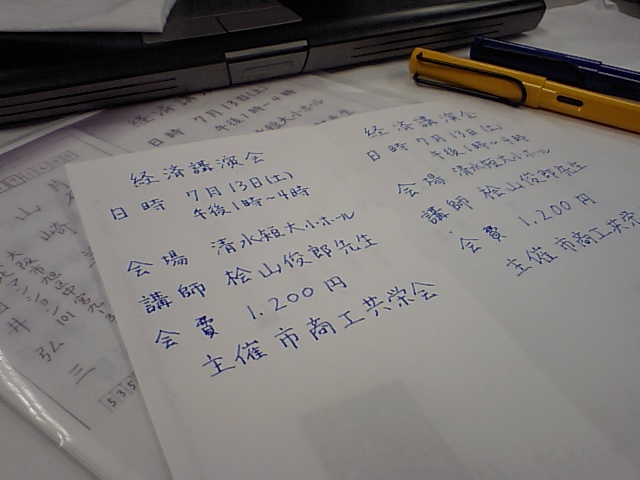 経済講演会
日時 7月13日(土)
午後1時〜4時
会場 清水短大小ホール
講師 桧山俊郎先生
会費 1.200円
主催 市商工共栄会
経済講演会
日時 7月13日(土)
午後1時〜4時
会場 清水短大小ホール
講師 桧山俊郎先生
会費 1.200円
主催 市商工共栄
経済講
日時 7月13日(土)
午後1時〜4時
短大小ホール
先生
山
崎
大阪市旭
マンション
101
井
弘
三
535